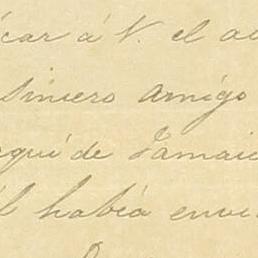 car á V. el au
sincero amigo
aquí de Jamaic
él había envi